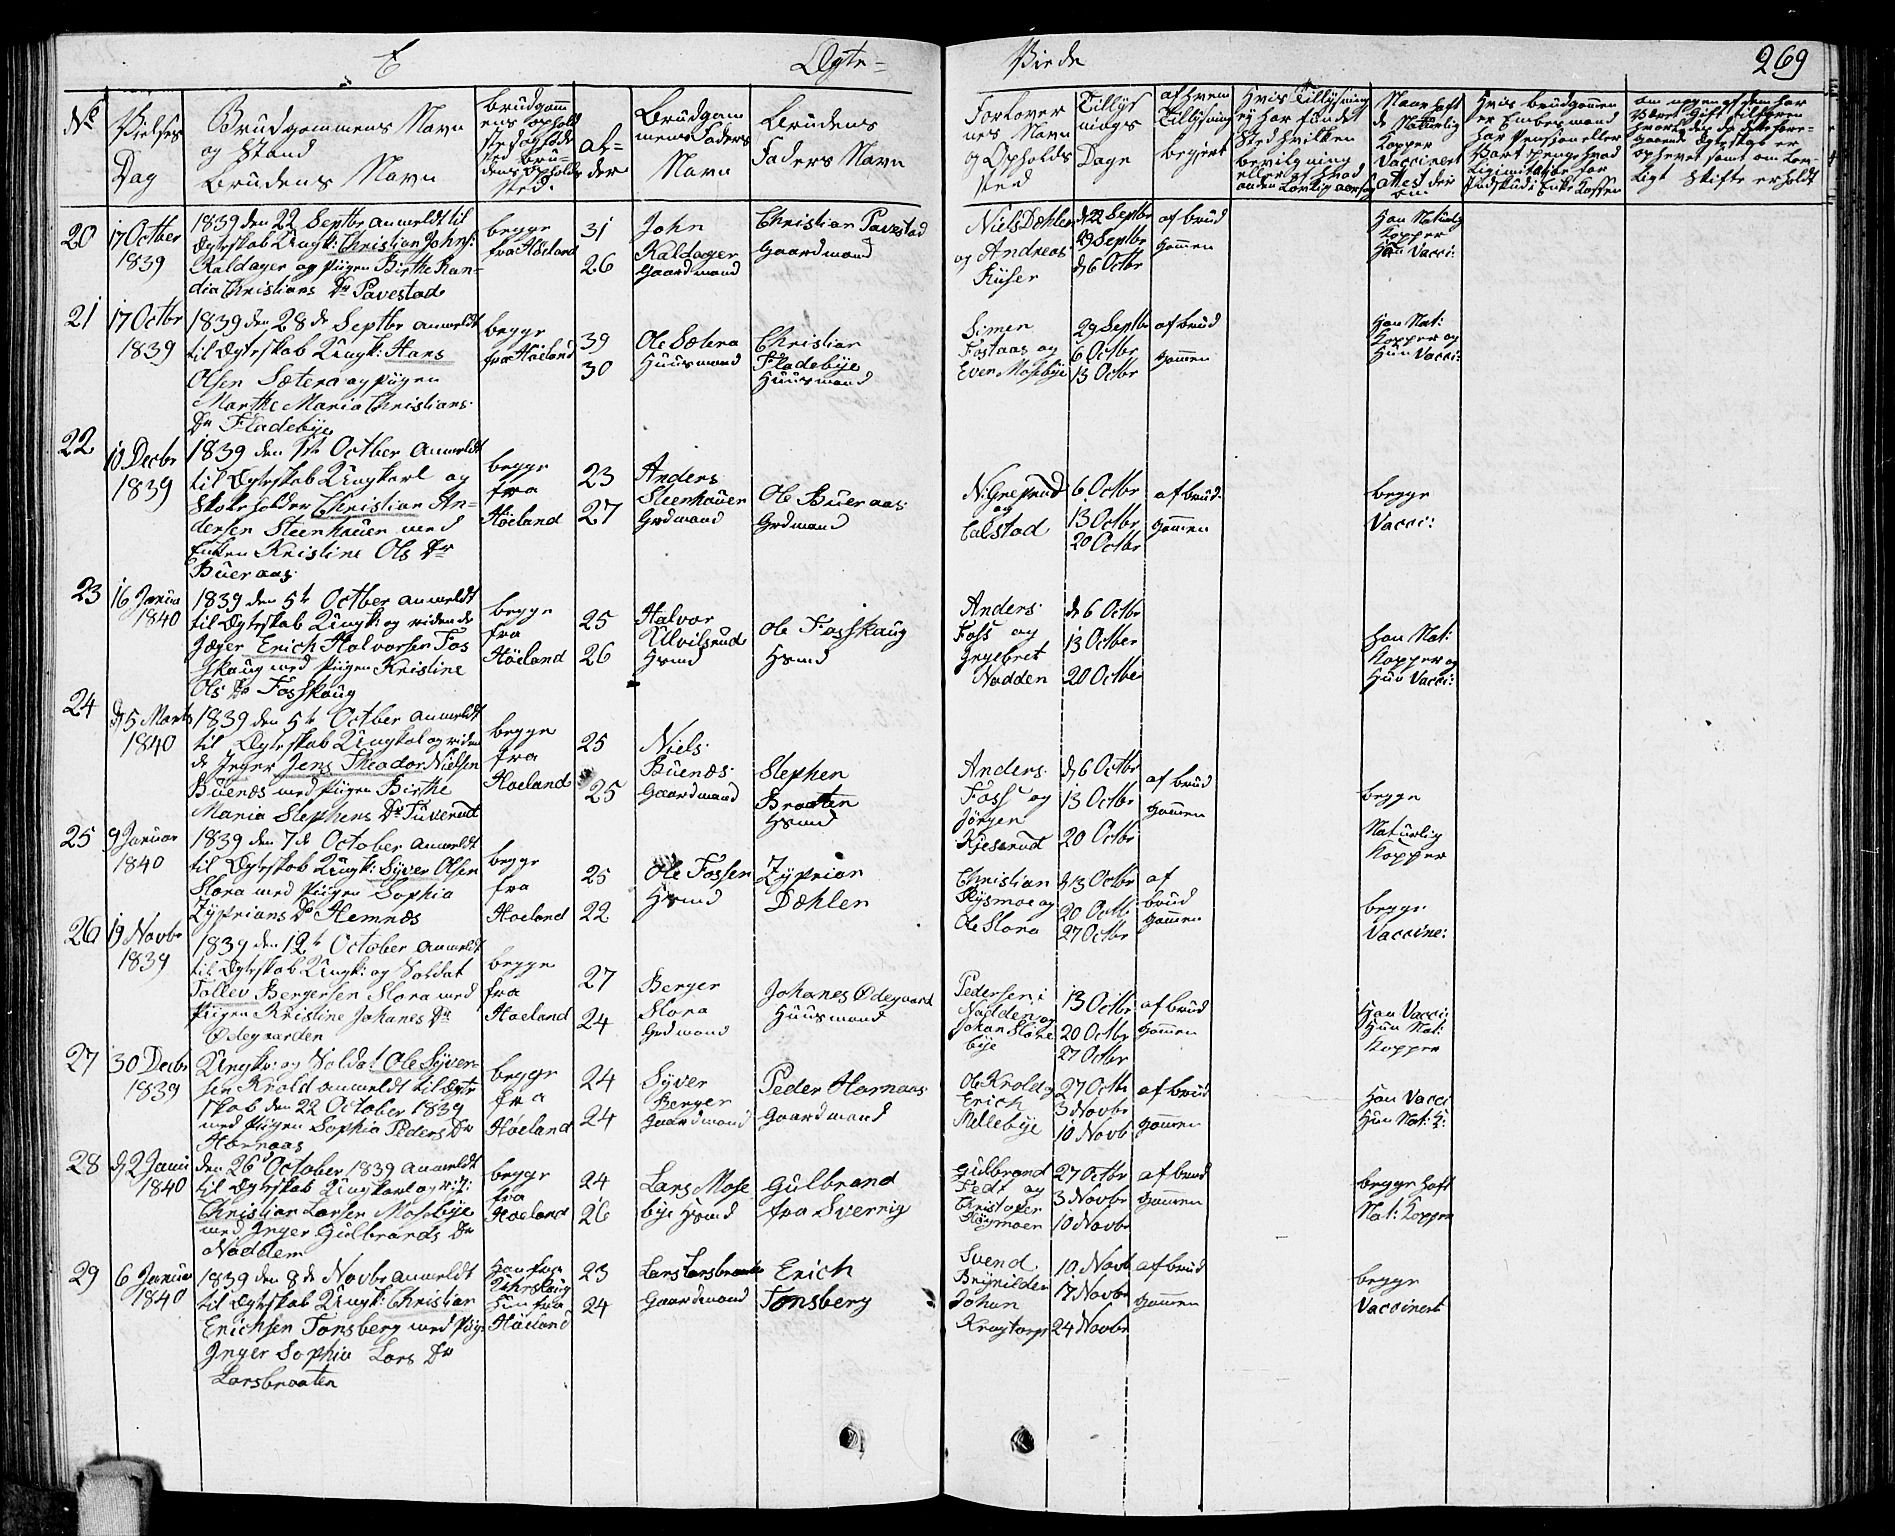 E Ægte- Viede 269
No
Vielses
Dag
Brudgommens Navn
og Stand
Brudens Navn
al-
der
Brudgom
mens Faders
Navn
Brudens
Faders Navn
Forlover
nes Navn
og Opholds
sted
Tillys
nings
Dage
af hvem
Tillysning
begjert
20
17 Octber
1839
1839 den 22 Septbr anmeldt til
Ægteskab Ungk: Christian Johns:
Kaldager og Pigen Birthe Ran-
dia Christians Dr Pavestad
begge
fra Høeland
31
26
John
Kaldager
Gaardmand
Christian Pavestad
Gaardmand
Niels Dæhlen
og Andreas
Kuser
d 22 Septbr
29 Septbr
d 6 Octbr
af brud
gommen
Han Naturlig
Kopper
Hun Vacci:
21
17 Octbr
1839
1839 den 28 de Septbr anmeldt
til Ægteskab Ungk: Hans
Olsen Sætera og Pigen
Marthe Maria Christians
Dr Fladebye
begge
fra Høeland
39
30
Ole Sætera
Huusmand
Christian
Fladebye
Huusmand
Simen
Fostaas og
Even Mosebye
29 Septbr
6 Octbr
13 Octbr
af brud
gommen
Han Nat:
Kopper og
Hun Vacci:
22
10 Decbr
1839
1839 den 1te Octber anmeldt
til Ægteskab Ungkarl og
Skoleholder Christian An-
dersen Steenhauer med
Enken Kristine Ols Dr
Bueraas
begge
fra
Høeland
23
27
Anders
Steenhauer
Grdmand
Ole Bueraas
Grdmand
N: Grepsrud
og
Calstad
6 Octbr
13 Octbr
20 Octbr
af brud-
gommen
begge
Vacci:
23
16 Janua
1840
1839 den 5te Octber anmeldt
til Ægteskab Ungk: og ridende
Jæger Erich Halvorsen Fos
skaug med Pigen Kristine
Ols Dr Fosskaug
begge
fra
Høeland
25
26
Halvor
Ulvilsrud
Hsmd
Ole Fosskaug
Hsmd
Anders
Foss og
Ingebret
Nadden
d 6 Octbr
13 Octber
20 Octbe
han Nat:
Kopper og
Hun Vacci:
24
d 5 Marts
1840
1839 den 5te October anmeldt
til Ægteskab Ungkal og riden
de Jeger Jens Theodor Nielsen
Buenæs med Pigen Birthe
Maria Stephens Dr Tuverud
begge
fra
Hoeland
25
25
Niels
Buenæs
Gaardmand
Stephen
Braaten
Hsmd
Anders
Foss og
Jörgen
Kjesrud
d 6 Octbr
13 Octbr
20 Octbr
af brud
gommen
begge
Naturlig
Kopper
25
9 Januar
1840
1839 den 7de October anmeldt
til Ægteskab Ungk: Syver Olsen
Slora med Pigen Sophia
Zyprians Dr Hemnæs
begge
fra
Hoeland
25
22
Ole Fossen
Hsmd
Zyprian
Dæhlen
Christian
Skysmoe og
Ole Slora
d 13 Octbr
20 Octb
27 Octbr
af
brud
gommen
begge
Vaccine:
26
19 Novbr
1839
1839 den 12te October anmeldt
til Ægteskab Ungk: og Soldat
Tollev Bergersen Slora med
Pigen Kristine Johanes Dr
Ødegaarden
begge
fra
Hoeland
27
24
Berger
Slora
Grdmand
Johanes Ødegaard
Huusmand
Pedersen i
Nadden og
Johan Slore
bye
13 Octbr
20 Octbr
27 Octbr
af brud
gommen
Han Vacci
Hun Nat:
Kopper
27
30 Decbr
1839
Ungk: og Soldat Ole Syver-
sen Krold anmeldt til Ægte
skab den 22 October 1839
med Pigen Sophia Peders Dr
Harnaas
begge
fra
Høeland
24
24
Syver
Berger
Gaardmand
Peder Harnaas
Gaardmand
Ole Krold og
Erich
Mellebye
27 Octb
3 Novbr
10 Novb
af brud
gommen
Han Vacci
Hun Nat: K:
28
d 2 Janu
1840
den 26d October 1839 anmeldt
til Ægteskab Ungkarl og
Christian Larsen Mosebye
med Inger Gulbrands Dr
Naddem
begge
fra
Hoeland
24
26
Lars Mose
bye Hsmd
Gulbrand
fra Sverrig
Gulbrand
Fedt og
Christofer
Høgmoen
27 Octbr
3 Novbr
10 Novbr
af brud
gommen
begge haft
Nat: Kopper
29
6 Janua
1840
1839 den 8de Novbr anmeldt
til Ægteskab Ungk: Christian
Erichsen Tonsberg med Pige
Inger Sophia Lars Dr
Larsbraaten
Han fra
Urskoug
Hun fra
Høeland
23
24
Lars Larsbraaten
Gaardmand
Erich
Tonsberg
Svend
Brynilden
Johan
Krogtorp
10 Novb
17 Novbr
24 Novbr
af brud
gommen
begge
Vaccinert